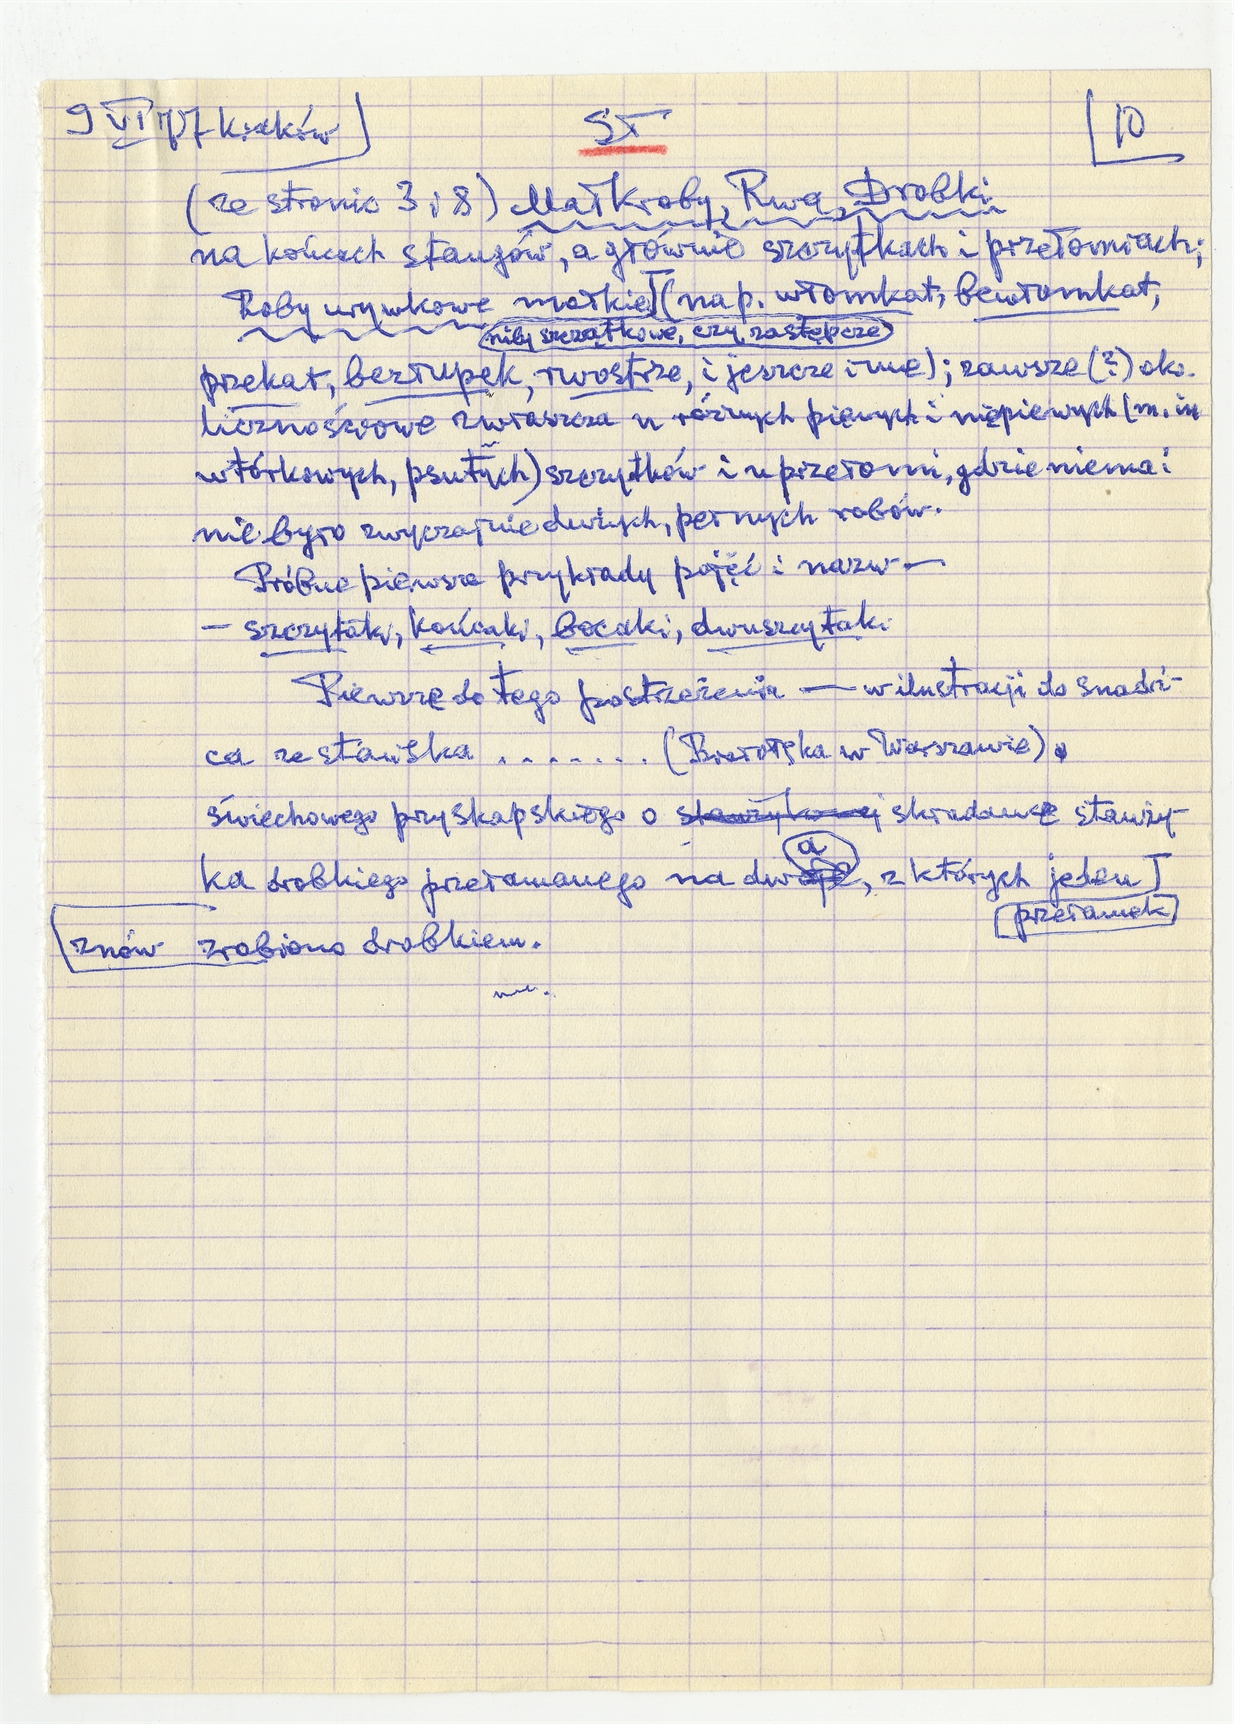 9 VI 77 Kraków
ST
10
(ze stronic 3 i 8) Małkroby, Rwą, Drobki
na końcach stangów, a głównie szczytkach i przełomiach;
Roby urywkowe małkie (nap. włomkat, bewłomkat,
niby szczątkowe, czy zastępcze
przekat, bezłupek, rwostrze, i jeszcze inne); zawsze (?) oko-
licznościowe zwłaszcza u różnych pięnych i niepięwych (m. in
wtórkowych, psutych) szczytków i u przełomi, gdzie niema i
nie było zwyczajnie dużych, pełnych robów.
Próbne pierwsze przykłady pojęć i nazw —
— szczytaki, końcaki, bocaki, dwuszczytaki
Pierwsze do tego postrzeżenia — w ilustracji do snadzi-
ca ze stawiska ....... (Białołęka w Warszawie)
świechowego pryskapskiego o stawżykowej składance stawży-
ka drobkiego przełamanego na dwa, z których jeden
przełamek
znów zrobiono drobkiem.